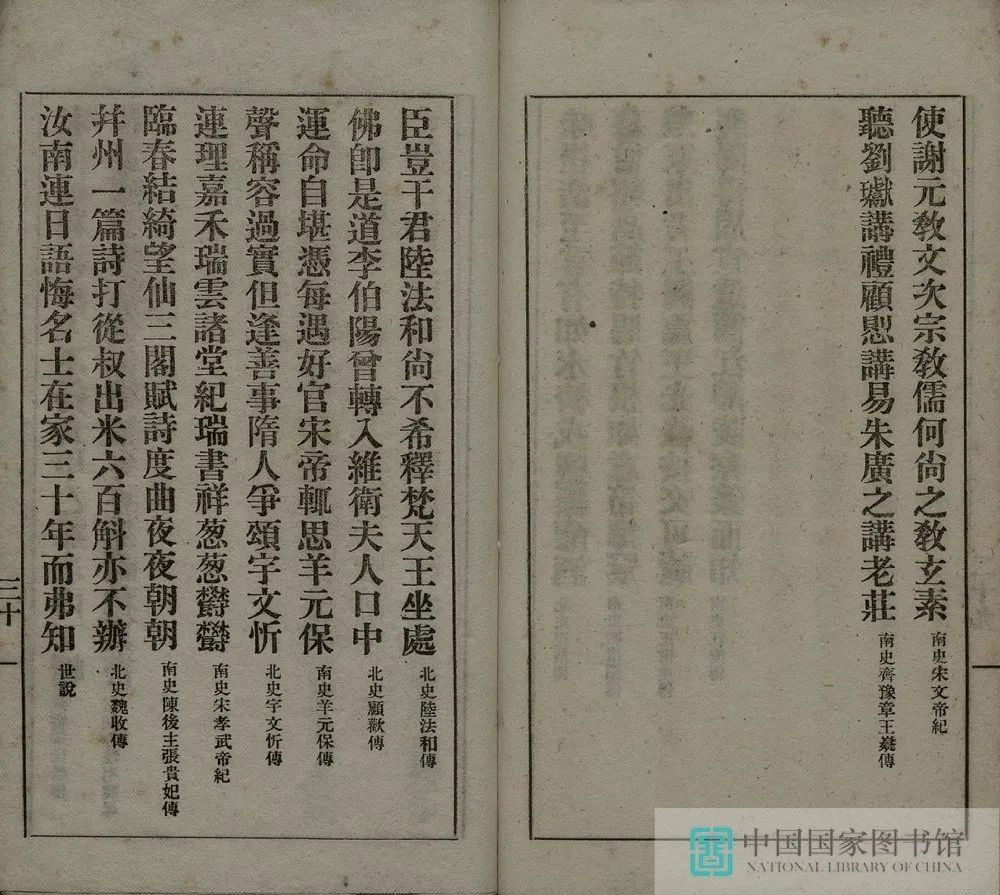 使謝元教文次宗教儒何尚之教玄素 南史宋文帝紀
聽劉瓛講禮顧懽講易朱廣之講老莊 南史齊豫章王嶷傳
臣豈干君陸法和尚不希釋梵天王坐處 北史陸法和傳
佛卽是道李伯陽曾轉入維衛夫人口中 北史顧歡傳
運命自堪憑每遇好官宋帝輒思羊元保 南史羊元保傳
聲稱容過實但逢善事隋人爭頌宇文忻 北史宇文忻傳
連理嘉禾瑞雲諸堂紀瑞書祥葱葱鬱鬱 南史宋孝武帝紀
臨春結綺望仙三閣賦詩度曲夜夜朝朝 南史陳後主張貴妃傳
幷州一篇詩打從叔出米六百斛亦不辦 北史魏收傳
汝南連日語悔名士在家三十年而弗知 世說
三十
中国国家图书馆
NATIONAL LIBRARY OF CHINA